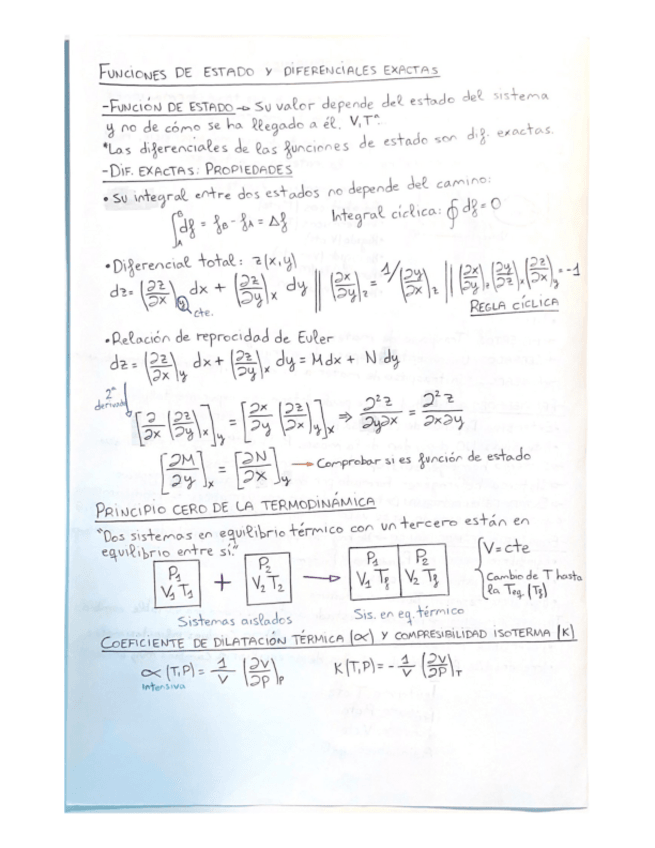 FUNCIONES DE ESTADO Y DIFERENCIALES EXACTAS
-FUNCIÓN DE ESTADO → Su valor depende del estado del sistema
y no de cómo se ha llegado a él. V, T^n.
*Las diferenciales de las funciones de estado son dif. exactas.
-DIF. EXACTAS: PROPIEDADES
• Su integral entre dos estados no depende del camino:
∫_A^B df = f_B - f_A = Δf    Integral cíclica: ∮ df = 0
• Diferencial total: z(x,y)
dz = (∂z/∂x)_y dx + (∂z/∂y)_x dy || (∂x/∂y)_z = 1/(∂y/∂x)_z || (∂x/∂y)_z (∂y/∂z)_x (∂z/∂x)_y = -1
cte.    REGLA CÍCLICA
• Relación de reprocidad de Euler
dz = (∂z/∂x)_y dx + (∂z/∂y)_x dy = M dx + N dy
2ª derivada
[∂/∂x (∂z/∂y)_x]_y = [∂x/∂y (∂z/∂x)_y]_x ⇒ ∂²z/∂y∂x = ∂²z/∂x∂y
[∂M/∂y]_x = [∂N/∂x]_y → Comprobar si es función de estado
PRINCIPIO CERO DE LA TERMODINÁMICA
"Dos sistemas en equilibrio térmico con un tercero están en
equilibrio entre sí."
P1 V1 T1 + P2 V2 T2 → P1 V1 Tf P2 V2 Tf
V = cte
Cambio de T hasta
la Teq (Tf)
Sistemas aislados    Sis. en eq. térmico
COEFICIENTE DE DILATACIÓN TÉRMICA (α) Y COMPRESIBILIDAD ISOTERMA (K)
α(T,P) = 1/V (∂V/∂P)_P    K(T,P) = - 1/V (∂V/∂P)_T
intensiva